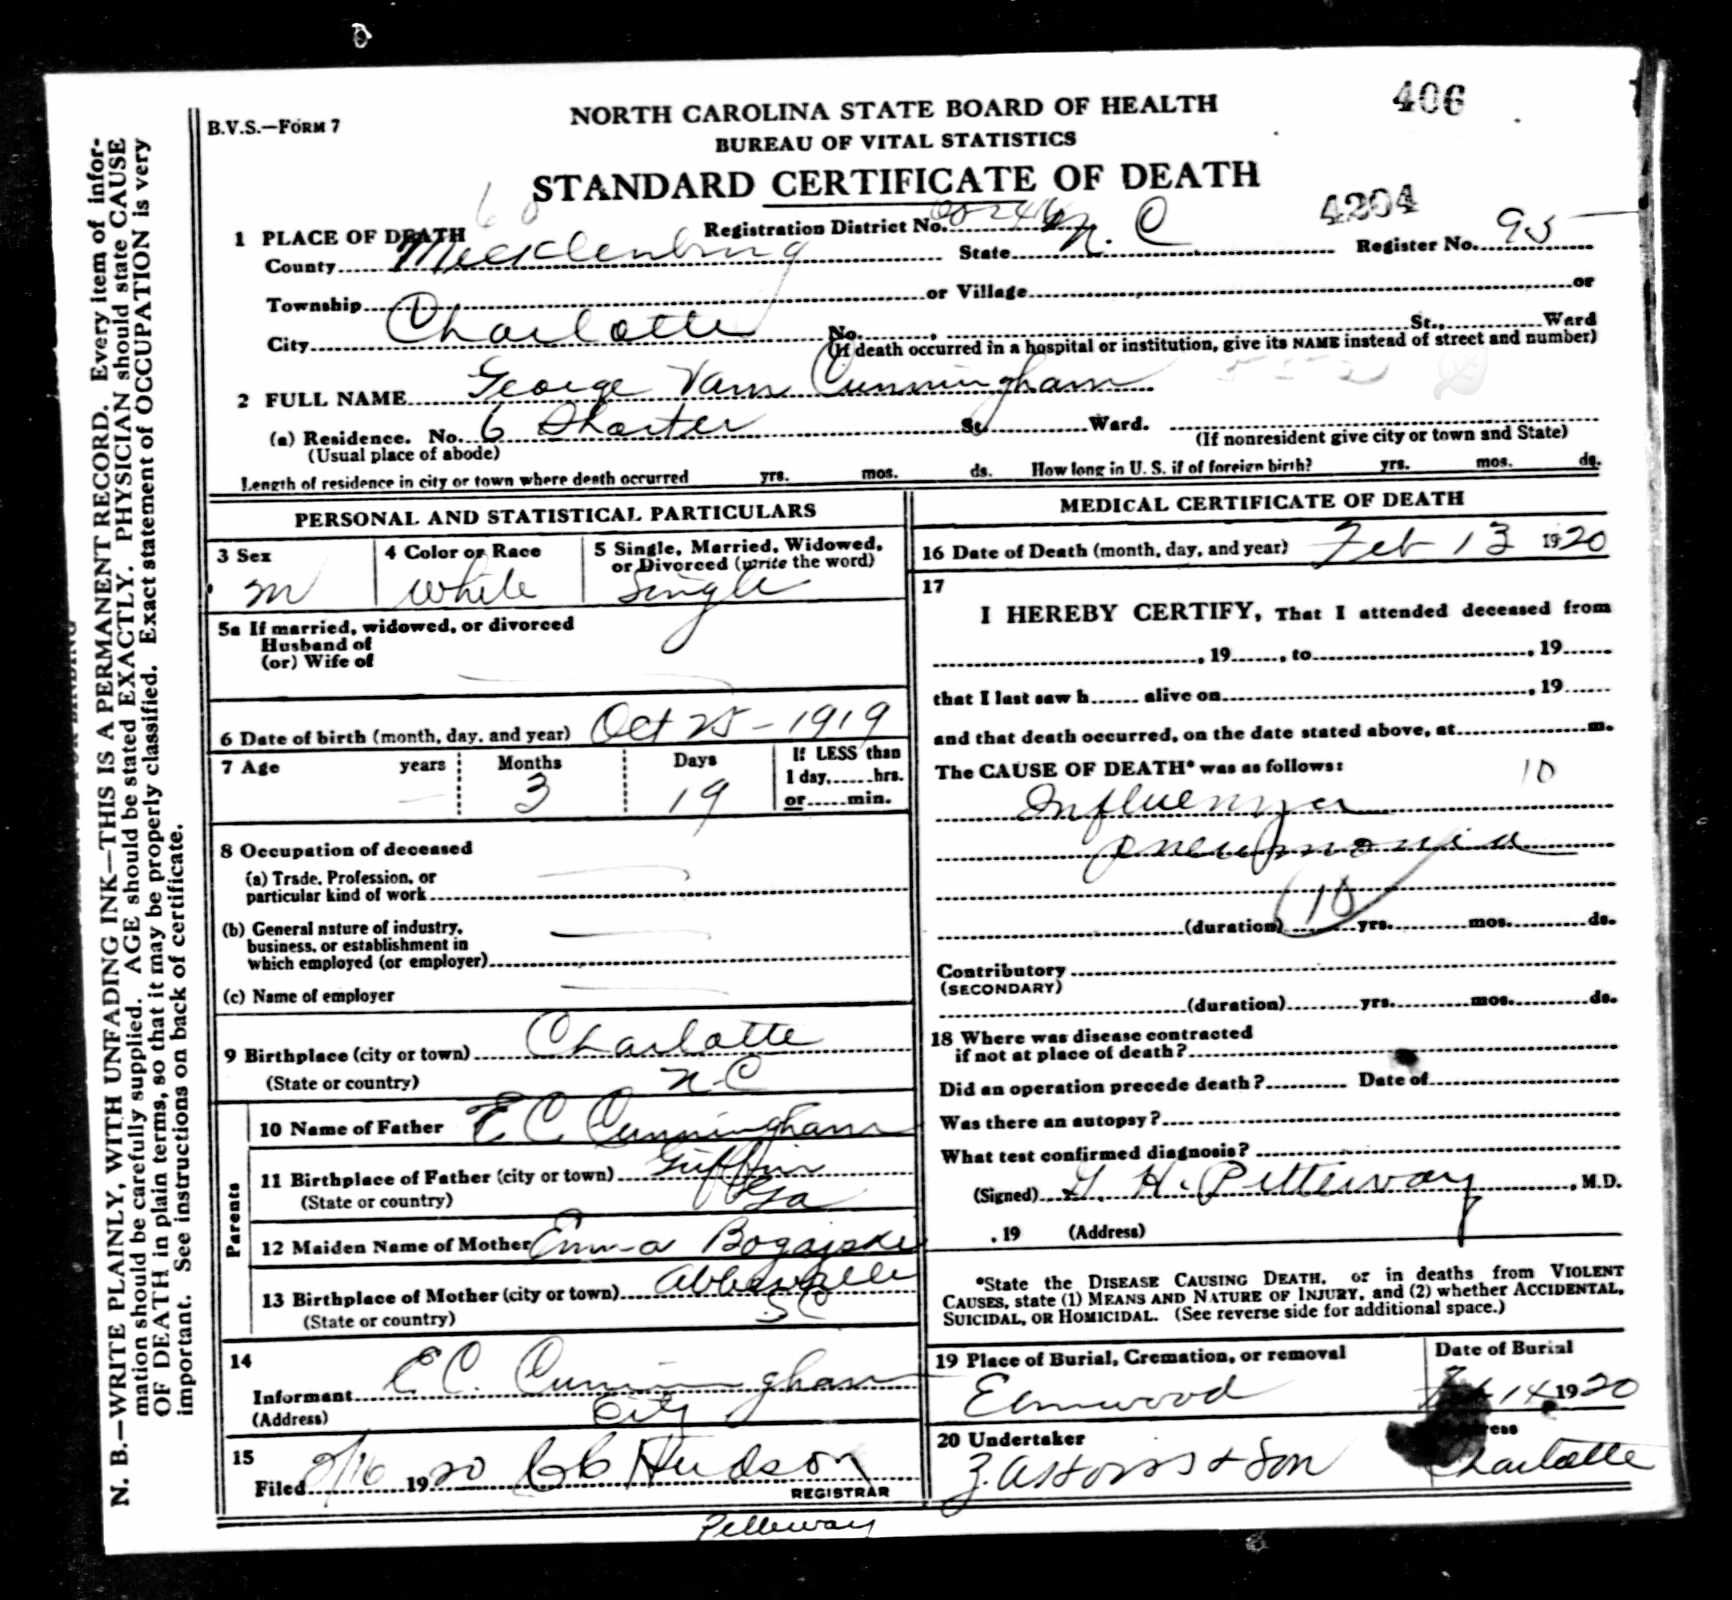 406
B.V.S.—FORM 7
NORTH CAROLINA STATE BOARD OF HEALTH
BUREAU OF VITAL STATISTICS
STANDARD CERTIFICATE OF DEATH
4204
1 PLACE OF DEATH Registration District No.
County Mecklenburg State N. C Register No. 95
Township or Village or
City Charlotte No. St., Ward
(If death occurred in a hospital or institution, give its NAME instead of street and number)
2 FULL NAME George Vann Cunningham
(a) Residence. No. 6 Sharter St Ward.
(Usual place of abode) (If nonresident give city or town and State)
Length of residence in city or town where death occurred yrs. mos. ds. How long in U. S. if of foreign birth? yrs. mos. ds.
PERSONAL AND STATISTICAL PARTICULARS
3 Sex 4 Color or Race 5 Single, Married, Widowed,
or Divorced (write the word)
m White Single
5a If married, widowed, or divorced
Husband of
(or) Wife of
6 Date of birth (month, day, and year) Oct 25-1919
7 Age years Months Days If LESS than
1 day, hrs.
3 19 or min.
8 Occupation of deceased
(a) Trade, Profession, or
particular kind of work
(b) General nature of industry,
business, or establishment in
which employed (or employer)
(c) Name of employer
9 Birthplace (city or town) Charlotte
(State or country) N-C
Parents
10 Name of Father E. C. Cunningham
11 Birthplace of Father (city or town) Griffin
(State or country) Ga
12 Maiden Name of Mother Emma
13 Birthplace of Mother (city or town) Abbeville
(State or country) SC
14
Informant E C. Cunningham
(Address) City
15
Filed 2/16 1920 Hudson
REGISTRAR
Petteway
MEDICAL CERTIFICATE OF DEATH
16 Date of Death (month, day, and year) Feb 13 1920
17
I HEREBY CERTIFY, That I attended deceased from
, 19 , to , 19
that I last saw h alive on , 19
and that death occurred, on the date stated above, at m.
The CAUSE OF DEATH* was as follows: 10
Influenza
pneumonia
10
(duration) yrs. mos. ds.
Contributory
(SECONDARY)
(duration) yrs. mos. ds.
18 Where was disease contracted
if not at place of death?
Did an operation precede death? Date of
Was there an autopsy?
What test confirmed diagnosis?
(Signed) G. H. Petteway , M.D.
, 19 (Address)
*State the DISEASE CAUSING DEATH, or in deaths from VIOLENT
CAUSES, state (1) MEANS AND NATURE OF INJURY, and (2) whether ACCIDENTAL,
SUICIDAL, OR HOMICIDAL. (See reverse side for additional space.)
19 Place of Burial, Cremation, or removal Date of Burial
Elmwood Feb 14 1920
20 Undertaker
& Son Charlotte
N. B.—WRITE PLAINLY, WITH UNFADING INK—THIS IS A PERMANENT RECORD. Every item of infor-
mation should be carefully supplied. AGE should be stated EXACTLY. PHYSICIAN should state CAUSE
OF DEATH in plain terms, so that it may be properly classified. Exact statement of OCCUPATION is very
important. See instructions on back of certificate.